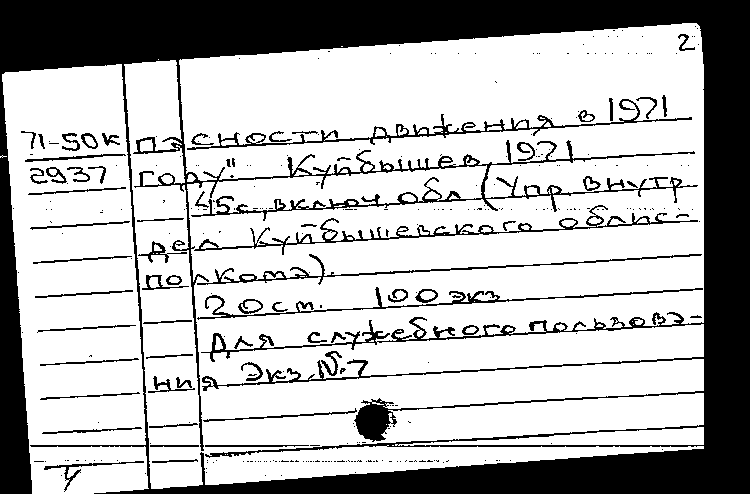 2
71-50к пасности движения в 1971
2937 году". Куйбышев, 1971
45с., включ. обл (Упр внутр
дел Куйбышевского облис-
полкома).
20см. 100 экз
Для служебного пользова-
ния Экз. №7